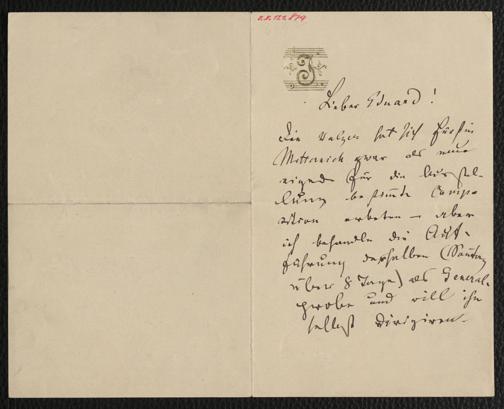 I.N. 122.879
J
Lieber Eduard!
Den Walzer hat sich Fürstin
Metternich zwar als eine
eigens für die Ausstel-
lung bestimmte Compo-
sition erbeten – aber
ich behandle die Auf-
führung desselben (Sonntag
über 8 Tage) als General-
probe und will ihn
selbst dirigiren.